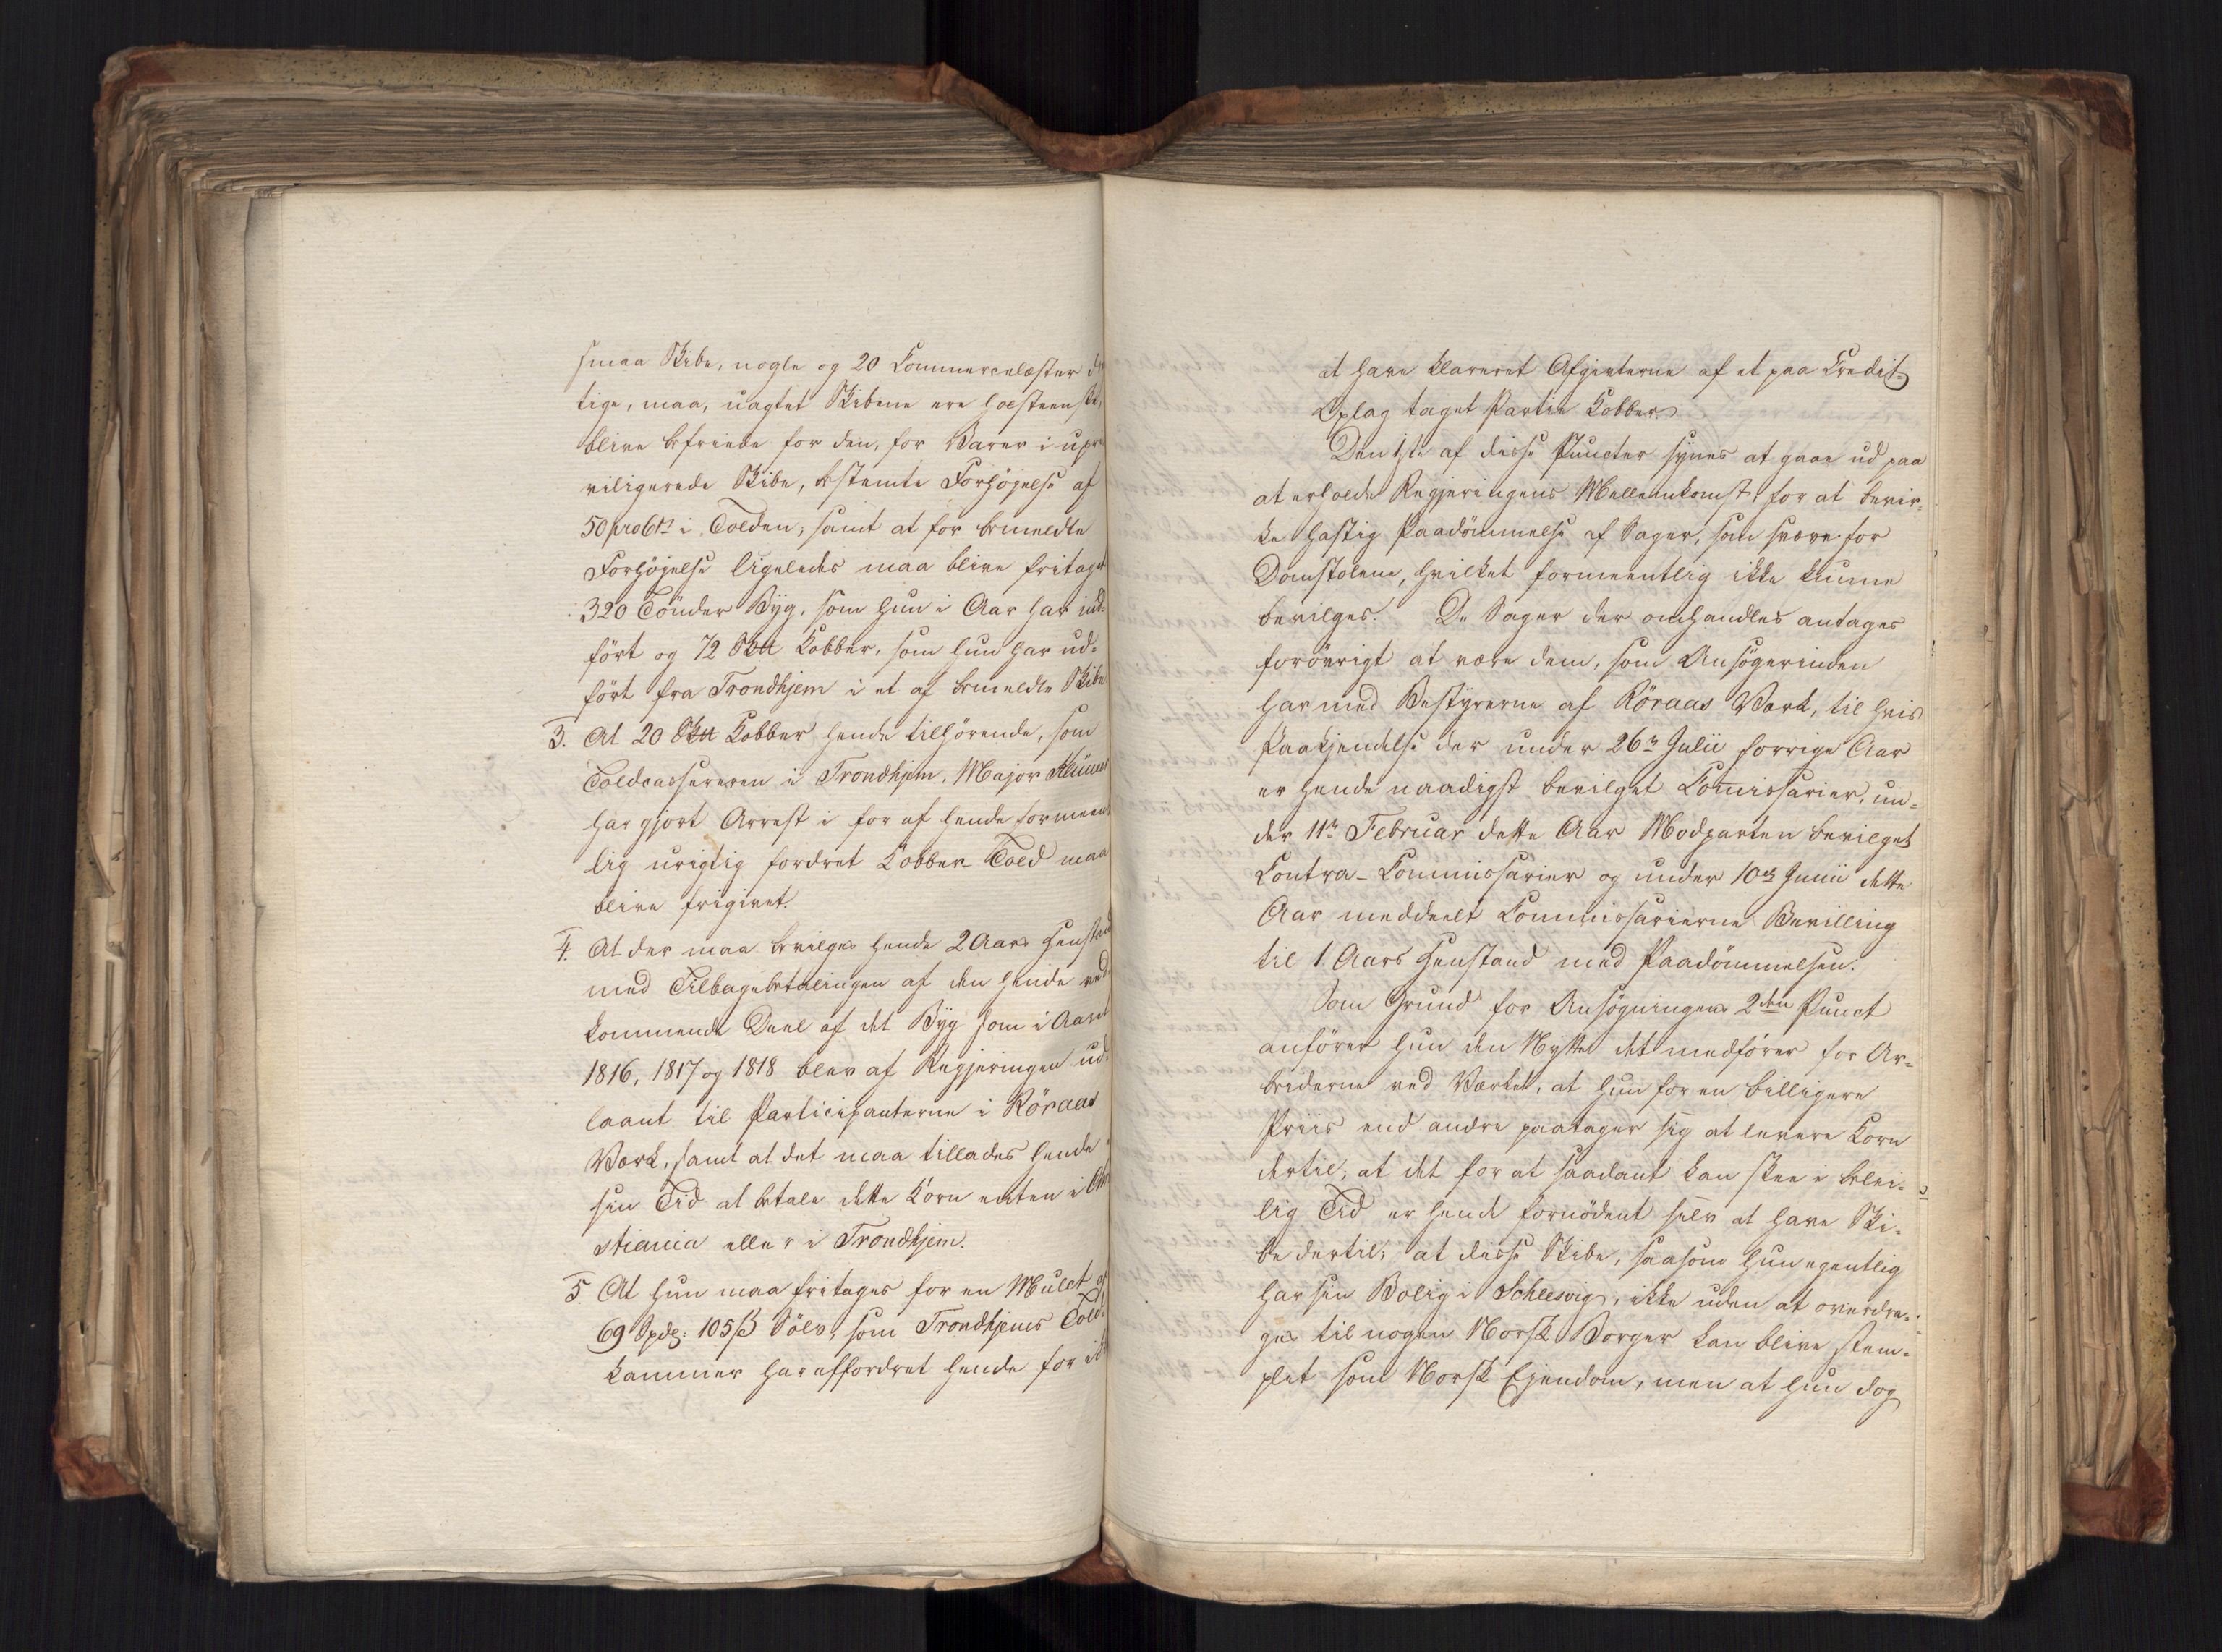 smaa Skibe, nogle og 20 Commercelæster
tige, maa, uagtet Skibene ere holsteenske,
blive befriede for den, for Varer i upri
viligerede Skibe, bestemte Forhöjelse af
50 proCt i Tolden; samt at for bemeldte
Forhöjelse ligeledes maa blive fritaget
320 Tönder Byg, som hun i Aar har ind-
fört og 72 Sk℔ Kobber, som hun har ud-
fört fra Trondhjem i et af bemeldte Skibe
3. At 20 Sk℔ Kobber hende tilhörende, som
Toldcassereren i Trondhjem, Major
har gjort Arrest i for af hende formeent
lig urigtig fordret Kobber-Told maa
blive frigivet.
4. At der maa bevilges hende 2 Aars Henstand
med Tilbagebetalingen af den hende ved-
kommende Deel af det Byg som i Aaret
1816, 1817 og 1818 blev af Regjeringen ud-
laant til Participanterne i Röraas
Værk, samt at det maa tillades hende i
sin Tid at betale dette Korn enten i Chri
stiania eller i Trondhjem.
5. At hun maa fritages for en Mulct af
69 Spdlr: 105 ß Sölv, som Trondhjems Told-
kammer har affordret hende for ikke
at have klareret Afgivterne af et paa Credit-
Oplag taget Partie Kobber.
Den 1ste af disse Puncter synes at gaae ud paa
at erholde Regjeringens Mellemkomst for at bevir-
ke hastig Paadömmelse af Sager, som svæve for
Domstolene, hvilket formeentlig ikke kunne
bevilges. De Sager der omhandles antages
forövrigt at være dem, som Ansögerinden
har med Bestyrerne af Röraas Værk, til hvis
Paakjendelse der under 26de Julii forrige Aar
er hende naadigst bevilget Commissarier, un-
der 11te Februar dette Aar Modparten bevilget
Contra-Commissarier og under 10de Junii dette
Aar meddeelt Commissarierne Bevilling
til 1 Aars Henstand med Paadömmelsen.
Som Grund for Ansögningens 2den Punct
anförer hun den Nytte det medförer for Ar-
beiderne ved Værket, at hun for en billigere
Priis end andre paatager sig at levere Korn
dertil; at det for at saadant kan skee i belei-
lig Tid er hende fornödent selv at have Ski-
be dertil; at disse Skibe, saasom hun egentlig
har sin Bolig i Schlesvig, ikke uden at overdra-
ges til nogen Norsk Borger kan blive stem-
plet som Norsk Ejendom, men at hun dog